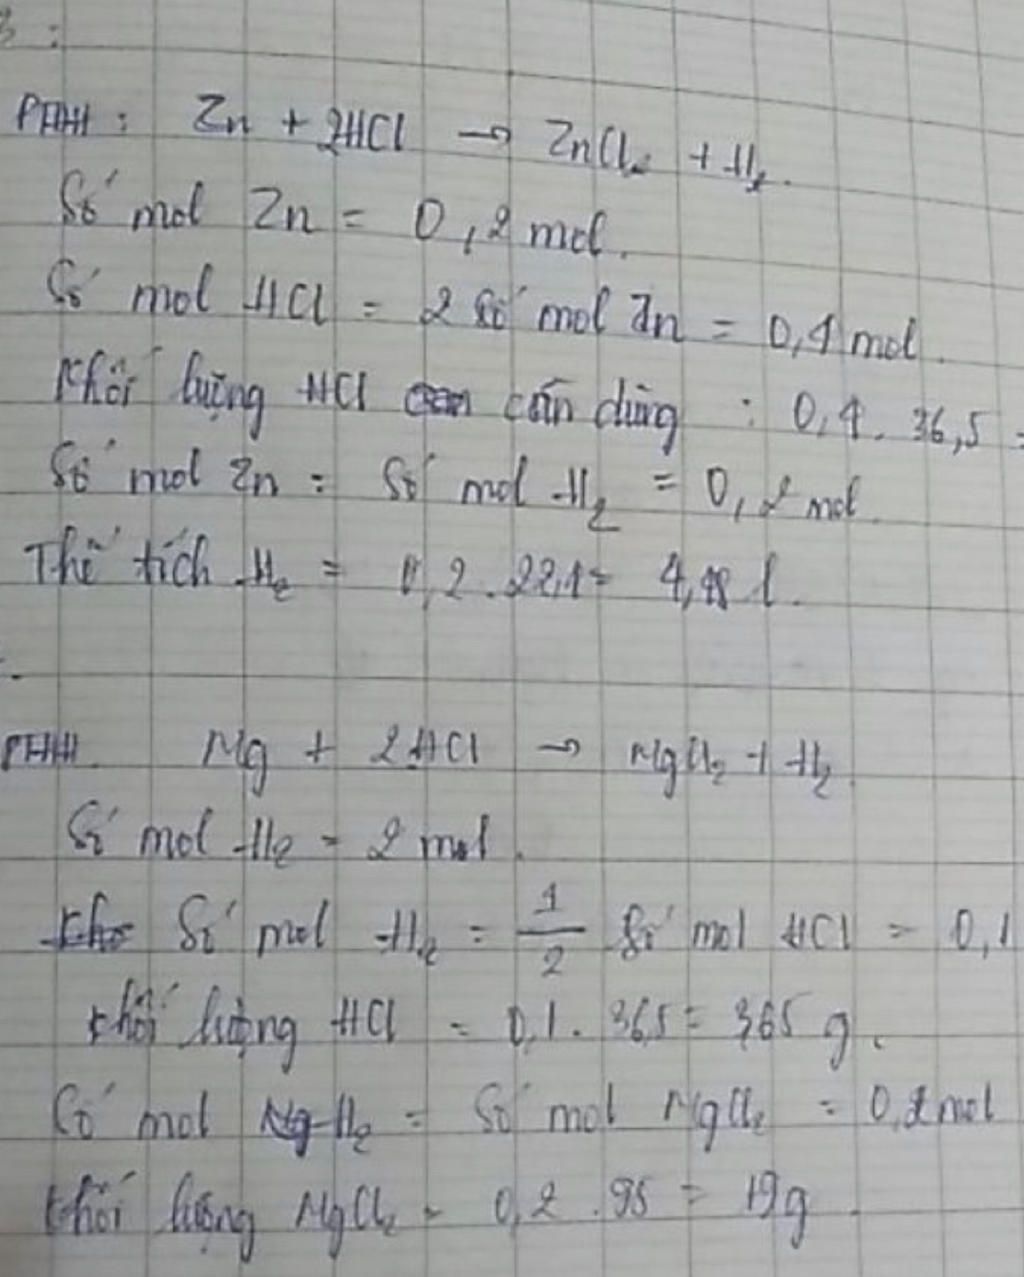 3 :
PTHH : Zn + 2HCl → ZnCl₂ + H₂.
Số mol Zn = 0,2 mol.
Số mol HCl = 2 số mol Zn = 0,4 mol.
Khối lượng HCl cần dùng : 0,4 . 36,5 =
Số mol Zn = Số mol H₂ = 0,2 mol.
Thể tích H₂ = 0,2 . 22,4 = 4,48 l.
PTHH. Mg + 2HCl → MgCl₂ + H₂
Số mol H₂ = 2 mol.
Số mol H₂ = 1/2 Số mol HCl = 0,1
Khối lượng HCl = 0,1 . 36,5 = 365 g.
Số mol H₂ = Số mol MgCl₂ = 0,2 mol
Khối lượng MgCl₂ = 0,2 . 95 = 19g.